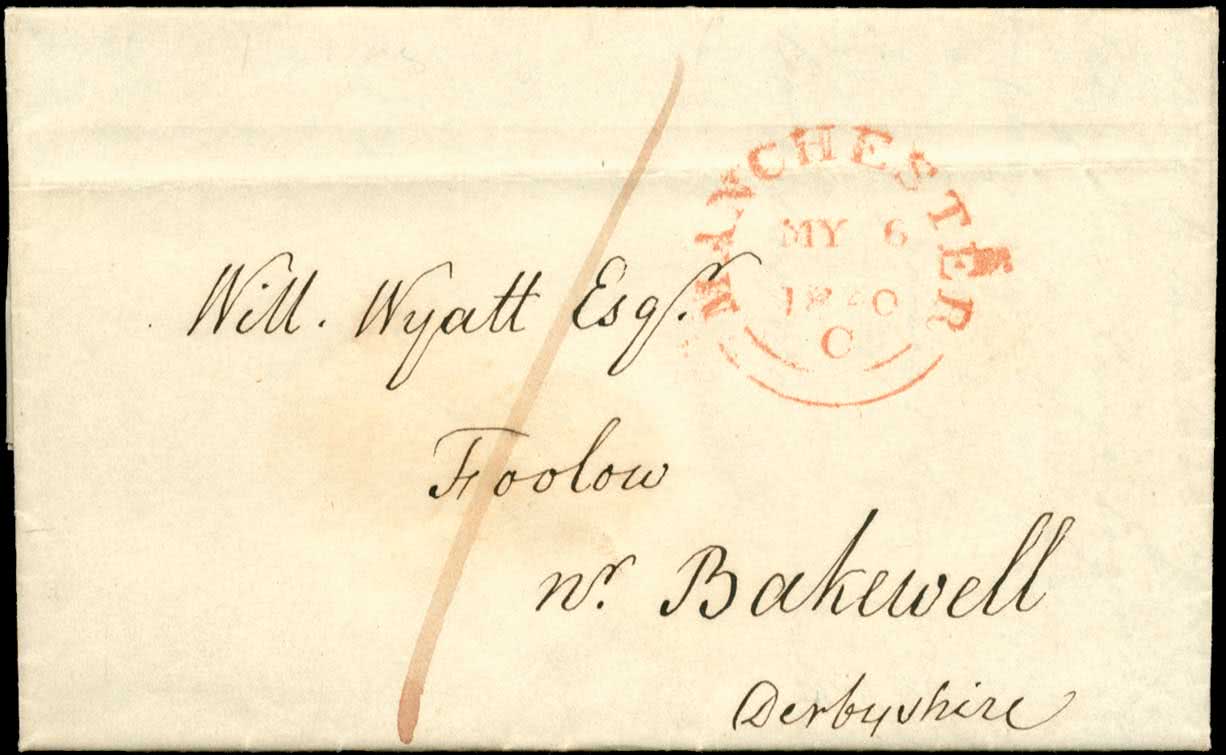 MANCHESTER
MY 6
1840
C
Will. Wyatt Esqr.
Foolow
nr. Bakewell
Derbyshire